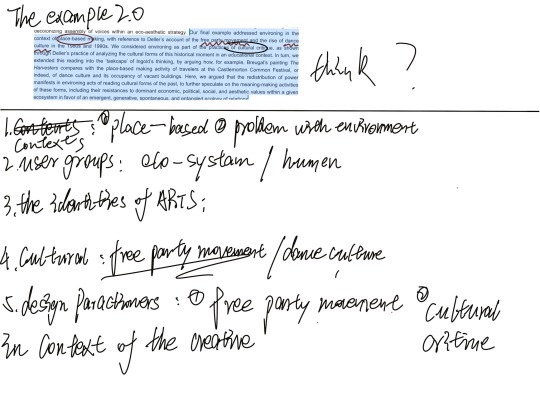 The example 2.0
decolonizing assembly of voices within an eco-aesthetic strategy. Our final example addressed environing in the
context of place-based making, with reference to Deller's account of the free party movement and the rise of dance
culture in the 1980s and 1990s. We considered environing as part of the practices of cultural critique, as shown
Deller's practice of analyzing the cultural forms of this historical moment in an educational context. In turn, we
extended this reading into the 'taskcape' of Ingold's thinking, by arguing how, for example, Breugal's painting The
Harvesters compares with the place-based making activity of travelers at the Castlemorton Common Festival, or
indeed, of dance culture and its occupancy of vacant buildings. Here, we argued that the redistribution of power
manifests in environing acts of reading cultural forms of the past, to further speculate on the meaning-making activities
of these forms, including their resistances to dominant economic, political, social, and aesthetic values within a given
ecosystem in favor of an emergent, generative, spontaneous, and entangled ecology of relations
think ?
1. Contents : ① place-based ② problem with environment
Contexts
2. user groups: eco-systam / humen
3. the idantities of ARTS;
4. Cultural : free party movement / dance culture
5. design Paractioners : ① free party movement ② cultural
in context of the creative critiue